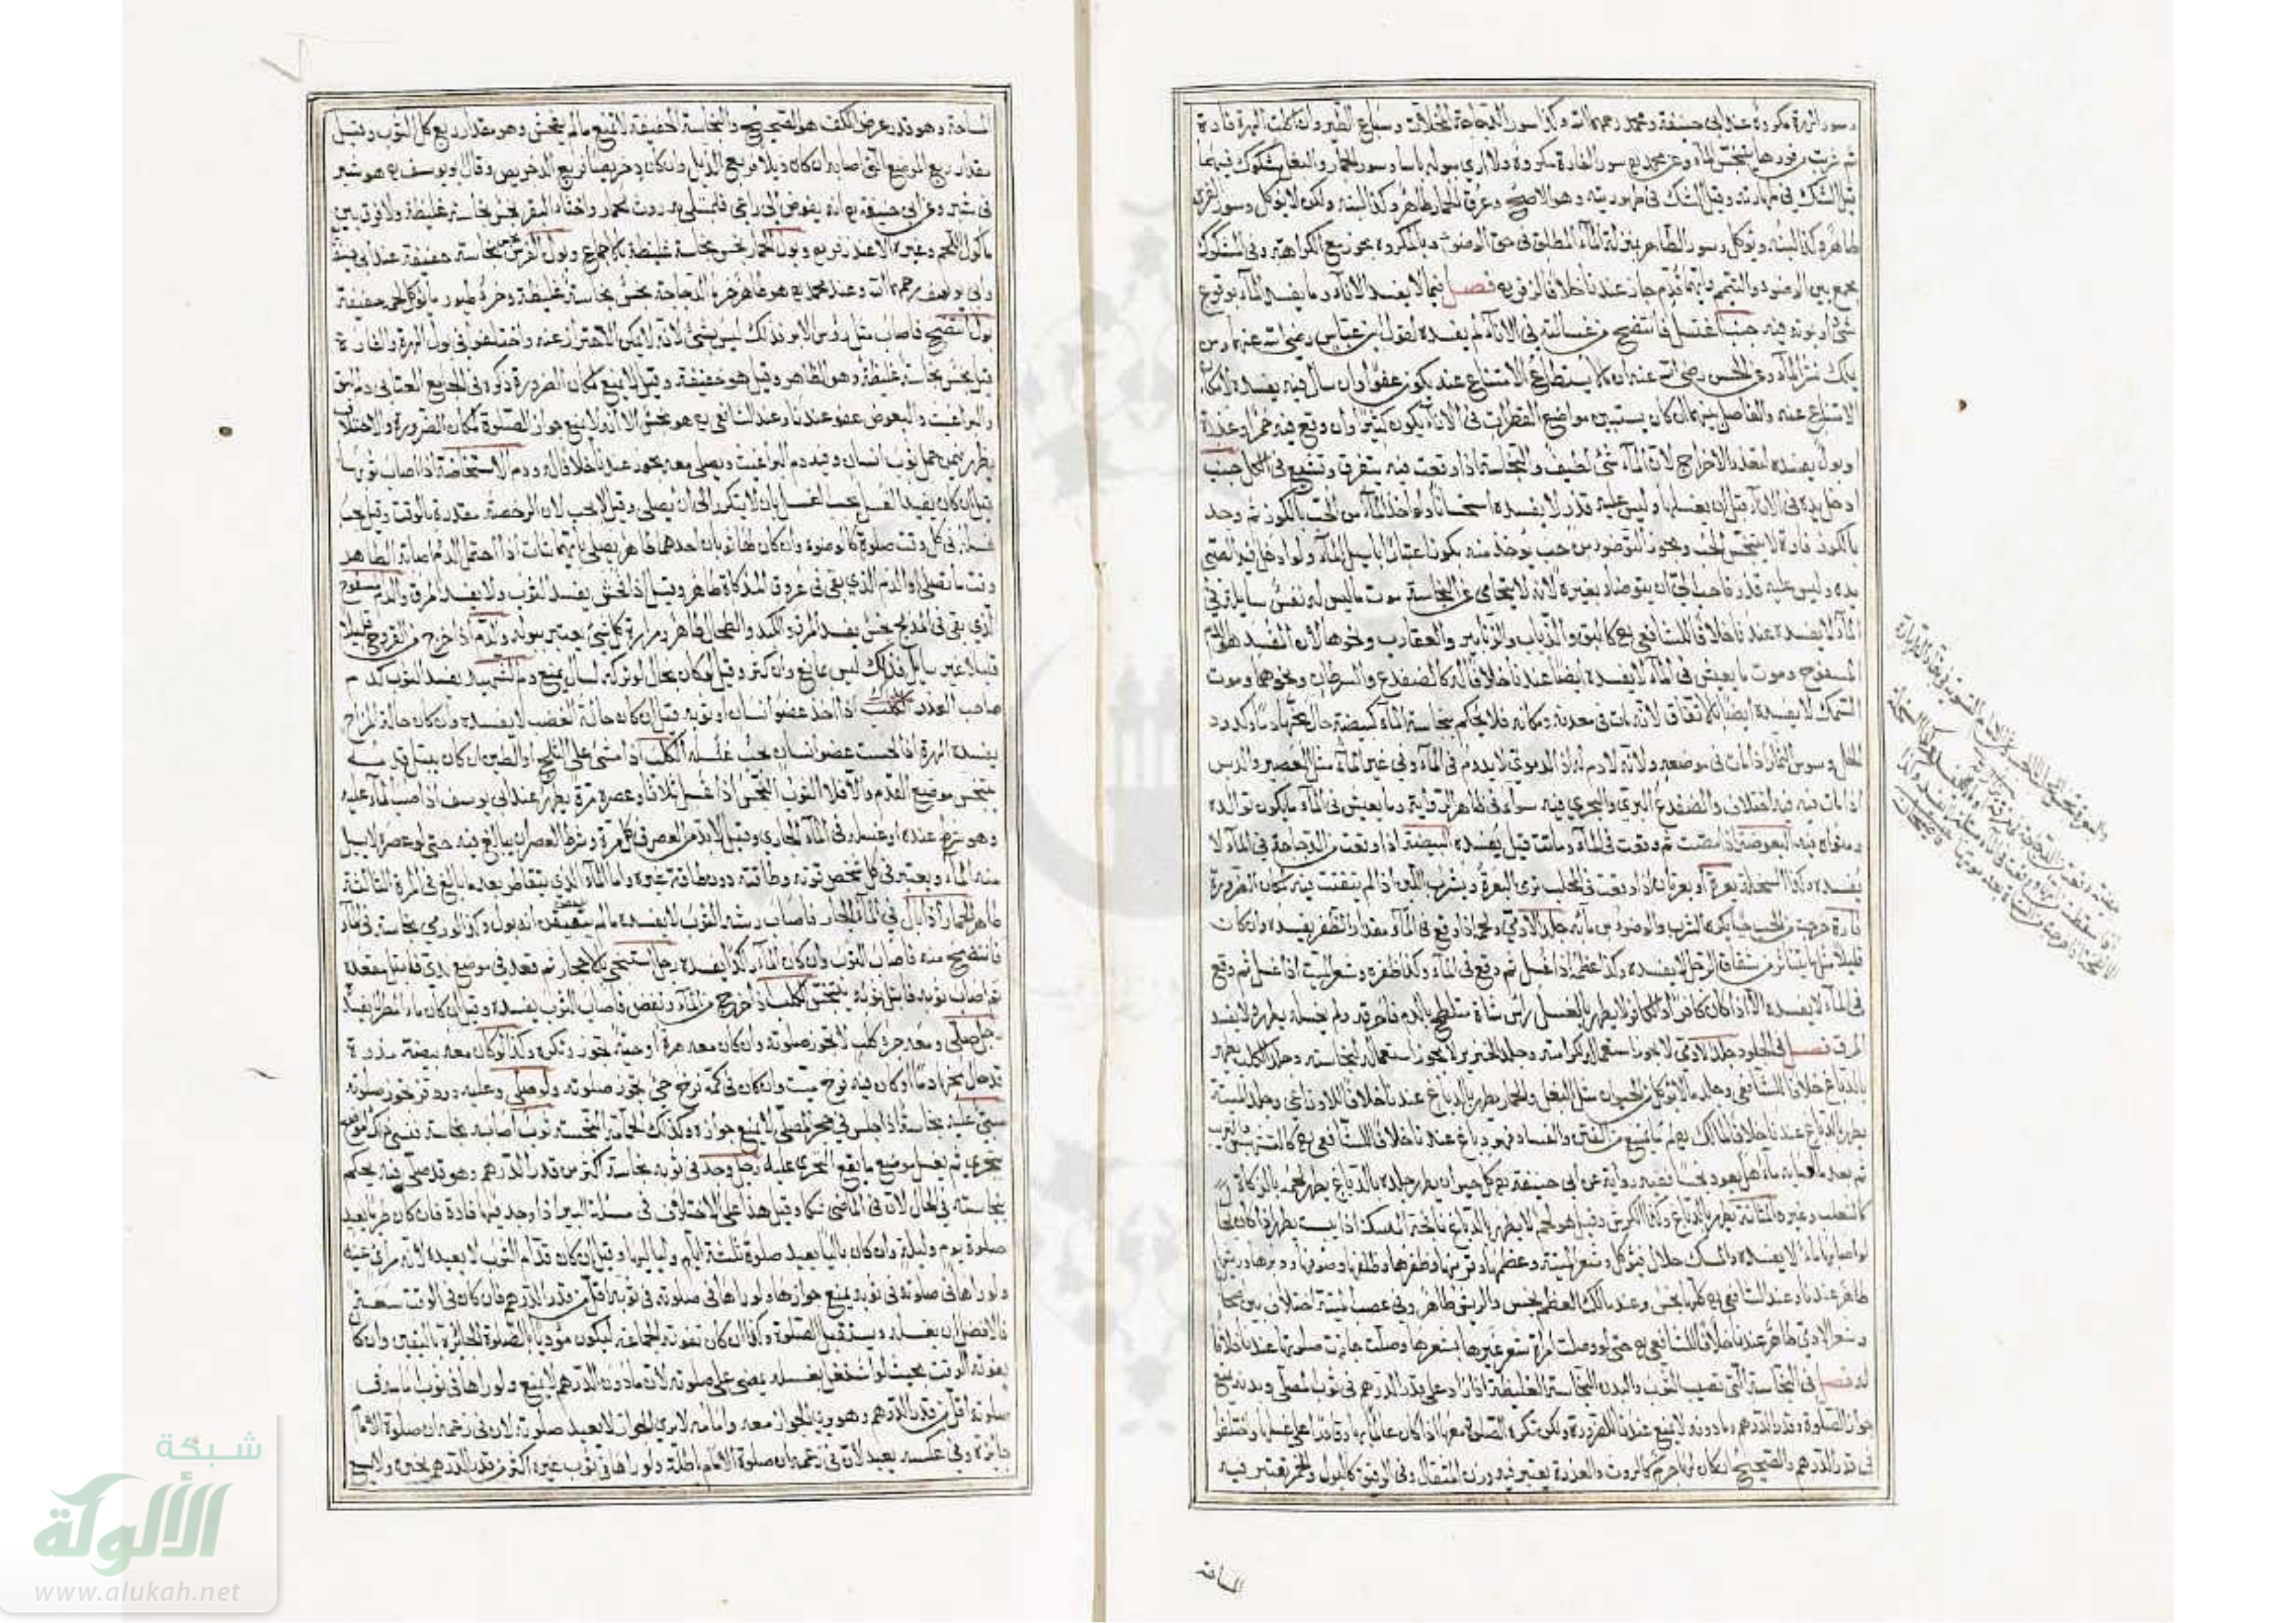 وسور الهرة مكروه عند ابي حنيفة ومحمد رحمهما الله وكذا سور الدجاجة المخلاة وسباع الطير وان اكلت الهرة فارة
ثم شربت من فورها يتنجس الماء وعن محمد رح سور الفارة مكروه ولا ارى بسوله باسا وسور الحمار والبغل مشكوك فيهما
قيل الشك في طهارته وقيل الشك في طهوريته وهو الاصح وعرق الحمار طاهر وكذا لبنه ولكن لا يؤكل وسور الفرس
طاهر وكذا لبنه ويؤكل وسور الطاهر بمنزلة الماء المطلق في حق الوضوء وبالمكروه يجوز مع الكراهة وفي المشكوك
يجمع بين الوضوء والتيمم وايهما قدم جاز عندنا خلافا لزفر رح فصل فيما لا يفسد الاناء وما يفسد الماء بوقوع
شئ او بموته فيه جنب اغتسل فانتضح من غسالته في الاناء لم يفسده لقول ابن عباس رضي الله عنهما ومن
يملك نشر الماء وعن الحسن رضي الله عنه ان ما لا يستطاع الامتناع عنه يكون عفوا وان سال فيه يفسده لامكان
الامتناع عنه والفاصل بينهما ان كان يستبين مواضع القطرات في الاناء يكون كثيرا وان وقع فيه خمر او عذرة
او بول يفسده لتعذر الاخراج لان الماء شئ لطيف والنجاسة اذا وقعت فيه يتفرق وتشيع في الكل جنب
ادخل يده في الاناء قبل ان يغسلها وليس عليه قذر لا يفسده استحسانا ولو اخذ الماء من الحب بالكوز ثم وجد
بالكوز فارة لا يتنجس الحب ويجوز التوضؤ من حب يوخذ منه
يده وليس عليه قذر فاحب الي ان يتوضأ بغيره لانه لا يتحامى عن النجاسة موت ما ليس له نفس سايلة في
الماء لا يفسده عندنا خلافا للشافعي رح كالبق والذباب والزنابير والعقارب ونحوها لان المفسد هو الدم
المسفوح وموت ما يعيش في الماء لا يفسده ايضا عندنا خلافا له كالضفدع والسرطان ونحوهما وموت
السمك لا يفسده ايضا بالاتفاق لانه مات في معدنه ومكانه فلا يحكم بنجاسة الماء كبيضة حال محها دما وكدود
الخل وسوس الثمار اذا مات في موضعه ولانه لا دم له اذ الدموي لا يدوم في الماء وفي غير الماء مثل العصير والدبس
اذا مات فيه فيه اختلاف والضفدع البري والبحري فيه سواء في ظاهر الرواية وما يعيش في الماء ما يكون توالده
ومثواه فيه البعوضة اذا مصت ثم وقعت في الماء وماتت قيل يفسده البيضة اذا وقعت من الدجاجة في الماء لا
يفسده وكذا السخلة بعرة او بعرتان اذا وقعت في المحلب ترمى البعرة ويشرب اللبن اذا لم يتفتت فيه لمكان الضرورة
فارة خرجت من الحب حيا يكره الشرب والوضوء من مائه جلد الآدمي ولحمه اذا وقع في الماء مقدار الظفر يفسده وان كان
قليلا مثل ما يتناثر من شقاق الرجل لا يفسده وكذا عظمه اذا غسل ثم وقع في الماء وكذا ظفره وشعر الميت اذا غسل ثم وقع
في الماء لا يفسده الا اذا كان كافرا لانه لا يطهر بالغسل راس شاة متلطخ بالدم فاحرقه ولم يغسله يطهر ولا يفسد
المرق فصل في الجلود جلد الآدمي لا يجوز استعماله لكرامته وجلد الخنزير لا يجوز استعماله لنجاسته وجلد الكلب يطهر
بالدباغ خلافا للشافعي وجلد ما لا يؤكل من الحيوان مثل البغل والحمار يطهر بالدباغ عندنا خلافا للاوزاعي وجلد الميتة
يطهر بالدباغ عندنا خلافا لمالك رح ثم ما يمنع من النتن والفساد فهو دباغ عندنا خلافا للشافعي رح كالتشميس والتتريب
ثم بعد ما اصابه ماء هل يعود نجسا فعنه رواية عن ابي حنيفة رح كل حيوان يطهر جلده بالدباغ يطهر لحمه بالذكاة
كالثعلب وغيره المثانة يطهر بالدباغ وكذا الكرش وقيل هو لحم لا يطهر بالدباغ نافجة المسك اذا يبست يطهر
لو اصابها ماء لا يفسده والمسك حلال فيؤكل وشعر الميتة وعظمها وقرنها وظفرها وظلفها وصوفها ووبرها وريشها
طاهر عندنا وعند الشافعي رح كلها نجس وعند مالك العظم نجس والريش طاهر وفي عصب الميتة اختلاف
وشعر الآدمي طاهر عندنا خلافا للشافعي رح حتى لو وصلت امراة شعر غيرها بشعرها وصلت جازت صلوتها عندنا خلافا
له فصل في النجاسة التي تصيب الثوب والبدن النجاسة الغليظة اذا زاد على قدر الدرهم في ثوب المصلي وبدنه يمنع
جواز الصلوة وقدر الدرهم وما دونه لا يمنع عندنا للضرورة ولكن تكره الصلوة معها اذا كان عالما بها وقادرا على غسلها واختلفوا
في قدر الدرهم والصحيح ان كان لها جرم كالروث والعذرة يعتبر فيه وزن المثقال وفي الرقيق كالبول والخمر يعتبر فيه
المساحة
المساحة وهو قدر عرض الكف هو الصحيح والنجاسة الخفيفة لا تمنع ما لم يفحش وهو مقدار ربع كل الثوب وقيل
مقدار ربع الموضع الذي اصابه ان كان ذيلا فربع الذيل وان كان دخريصا فربع الدخريص وقال ابو يوسف رح هو شبر
في شبر وعن ابي حنيفة رح انه يفوض الى راي المبتلى به روث الحمار واخثاء البقر نجس نجاسة غليظة ولا فرق بين
ماكول اللحم وغيره الا عند زفر رح وبول الحمار نجس نجاسة غليظة بالاجماع وبول الفرس نجس نجاسة خفيفة عند ابي حنيفة
وابي يوسف رحمهما الله وعند محمد رح هو طاهر خرء الدجاجة نجس نجاسة غليظة وخرء طيور ما يؤكل لحمه خفيفة
بول انتضح فاصاب مثل رؤس الابر فذلك ليس بشئ لانه لا يمكن الاحتراز عنه واختلفوا في بول الهرة والفارة
قيل نجس نجاسة غليظة وهو الظاهر وقيل هو خفيفة وقيل لا يمنع لمكان الضرورة ذكره في الجامع العتابي ودم البق
والبراغيث والبعوض عفو عندنا وعند الشافعي رح هو نجس الا انه لا يمنع جواز الصلوة لمكان الضرورة والاختلاف
يظهر فيمن حمل ثوب انسان وفيه دم البراغيث ويصلي معه يجوز عندنا خلافا له ودم الاستحاضة اذا اصاب ثوبها
قيل ان كان يفيد الغسل يجب الغسل بان لا يتكرر الى ان يصلي وقيل لا يجب لان الرخصة مقدرة بالوقت وقيل يجب
غسله في كل وقت صلوة كالوضوء وان كان لها ثوبان احدهما طاهر يصلي بايهما شات اذا احتمل الدم اصابة الطاهر
وقت ما تصلي والدم الذي بقي في عروق المذكاة طاهر وقيل اذا فحش يفسد الثوب ولا يفسد المرق والدم المسفوح
الذي بقي في المذبح نجس يفسد المرق والكبد والطحال طاهر ومرارة كل شئ يعتبر ببوله والدم اذا خرج من القروح قليلا
قليلا غير سايل فذلك ليس بمانع وان كثر وقيل لو كان بحال لو تركه لسال يمنع ودم الشهيد يفسد الثوب كدم
صاحب العذر الكلب اذا اخذ عضو انسان او ثوبه قيل ان كان حالة الغضب لا يفسده وان كان حالة المزاح
يفسده الهرة اذا لحست عضو انسان يجب غسله الكلب اذا مشى على الثلج او الطين ان كان يبتل قدمه
يتنجس موضع القدم والا فلا الثوب النجس اذا غسل ثلاثا وعصره مرة يطهر عند ابي يوسف اذا صب الماء عليه
وهو شرط عنده او غسله في الماء الجاري وقيل لا بد من العصر في كل مرة وشرط العصر ان يبالغ فيه حتى لو عصره لا يسيل
منه الماء ويعتبر في كل شخص قوته وطاقته دون طاقة غيره واما الماء الذي يتقاطر بعد ما بالغ في المرة الثالثة
طاهر الحمار اذا بال في الماء الجاري فاصاب رشه الثوب لا يفسده ما لم يتيقن انه بول وكذا لو رمي نجاسة في الماء
فانتضح منه فاصاب الثوب وان كان الماء راكدا يفسده رجل استنجى بالاحجار ثم قعد في موضع ندي فابتل مقعده
ثم اصاب ثوبه فابتل ثوبه يتنجس الكلب اذا خرج من الماء ونفض فاصاب الثوب يفسده وقيل ان كان ماء المطر لا يفسد
رجل صلى ومعه جرو كلب لا تجوز صلوته وان كان معه هرة او حية تجوز وتكره وكذا لو كان معه بيضة مذرة
قد حال محها دما او كان فيه فرخ ميت وان كان في كمه فرخ حي تجوز صلوته ولو صلى وعليه
صبي عليه نجاسة اذا جلس في حجر المصلي لا يمنع جوازه وكذلك الحمامة النجسة ثوب اصابه نجاسة فنسي ذلك الموضع
يتحرى ثم يغسل موضع ما يقع التحري عليه رجل وجد في ثوبه نجاسة اكثر من قدر الدرهم وهو قد صلى فيه يحكم
بنجاسته في الحال لان في الماضي شكا وقيل هذا على الاختلاف في مسئلة البير اذا وجد فيها فارة فان كان طريا يعيد
صلوة يوم وليلة وان كان باليا يعيد صلوة ثلثة ايام ولياليها وقيل ان كان قدام الثوب لا يعيده لانه مرئي عينه
ولو راها في صلوته في ثوبه يمنع جوازها ولو راها في صلوته في ثوبه اقل من قدر الدرهم فان كان في الوقت سعة
فالافضل ان يغسله ويستقبل الصلوة وكذا ان كان تفوته الجماعة ليكون مؤديا الصلوة الجائزة باليقين وان كان
يفوته الوقت بحيث لو اشتغل بغسله يمضي على صلوته لان ما دون الدرهم لا يمنع ولو راها في ثوب امامه في
صلوته اقل من قدر الدرهم وهو يرى الجواز معه وامامه لا يرى الجواز لا يعيد صلوته لان في زعمه ان صلوة الامام
جائزة وفي عكسه يعيد لان في زعمه ان صلوة الامام باطلة ولو راها في ثوب غيره اكثر من قدر الدرهم يخبره ولا يسع
شبكة
الألوكة
www.alukah.net